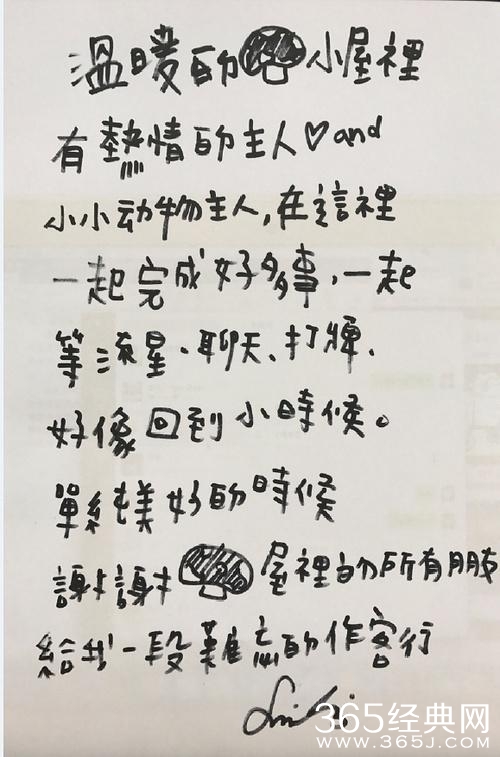 溫暖的小屋裡
有熱情的主人♡and
小小动物主人,在這裡
一起完成好多事,一起
等流星、聊天、打牌、
好像回到小時候。
單純美好的時候
謝謝屋裡的所有朋友
給我一段難忘的作客行
365经典网
www.365J.COM